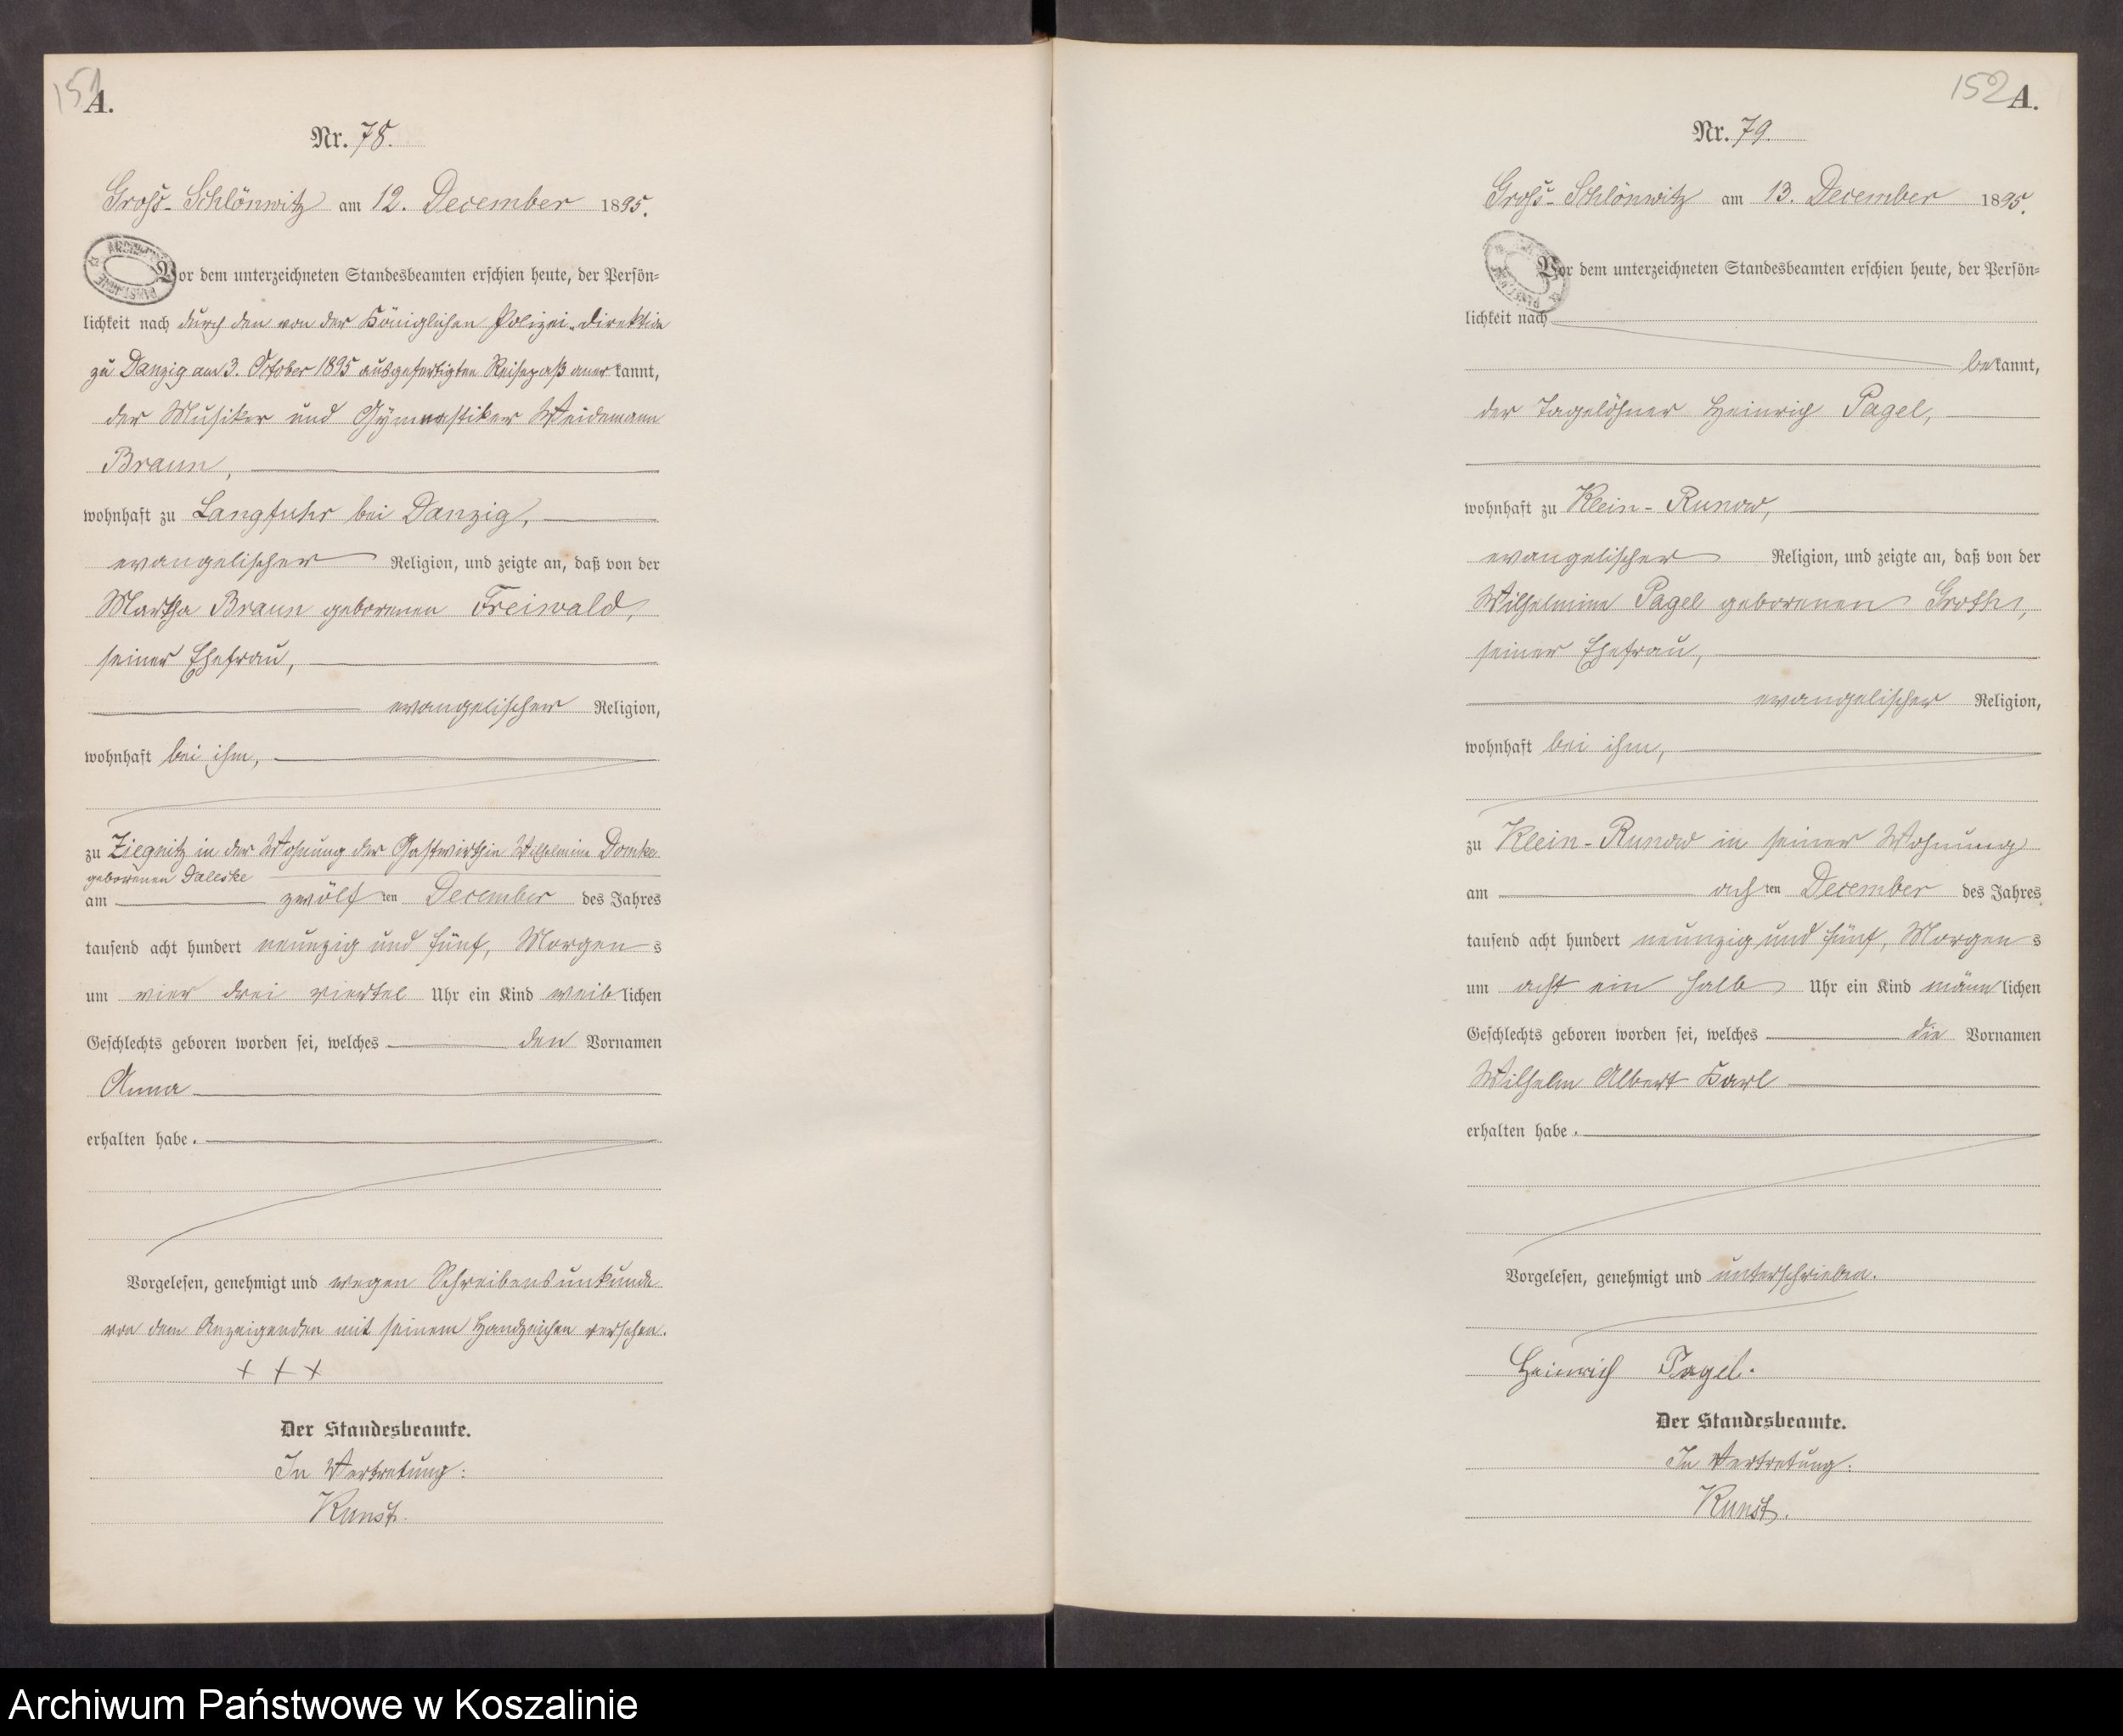 151
A.
Nr. 78.
Groß-Schlönwitz am 12. December 1895.
Vor dem unterzeichneten Standesbeamten erschien heute, der Persön=
lichkeit nach durch den von der Königlichen Polizei-Direktion
zu Danzig am 3. October 1895 ausgefertigten Reisepaß anerkannt,
der Musiker und Gymnastiker Weidemann
Braun,
wohnhaft zu Langfuhr bei Danzig,
evangelischer Religion, und zeigte an, daß von der
Martha Braun geborenen Freiwald,
seiner Ehefrau,
evangelischer Religion,
wohnhaft bei ihm,
zu Ziegnitz in der Wohnung der Gastwirthin Wilhelmine Domke
geborenen Daleske
am zwölften December des Jahres
tausend acht hundert neunzig und fünf, Morgens
um vier drei viertel Uhr ein Kind weiblichen
Geschlechts geboren worden sei, welches den Vornamen
Anna
erhalten habe.
Vorgelesen, genehmigt und wegen Schreibensunkunde
von dem Anzeigenden mit seinem Handzeichen versehen.
+ + +
Der Standesbeamte.
In Vertretung:
Kunst.
152
A.
Nr. 79.
Groß-Schlönwitz am 13. December 1895.
Vor dem unterzeichneten Standesbeamten erschien heute, der Persön=
lichkeit nach
bekannt,
der Tagelöhner Heinrich Pagel,
wohnhaft zu Klein-Runow,
evangelischer Religion, und zeigte an, daß von der
Wilhelmine Pagel geborenen Groth,
seiner Ehefrau,
evangelischer Religion,
wohnhaft bei ihm,
zu Klein-Runow in seiner Wohnung
am achten December des Jahres
tausend acht hundert neunzig und fünf, Morgens
um acht ein halb Uhr ein Kind männlichen
Geschlechts geboren worden sei, welches die Vornamen
Wilhelm Albert Karl
erhalten habe.
Vorgelesen, genehmigt und unterschrieben.
Heinrich Pagel.
Der Standesbeamte.
In Vertretung:
Kunst.
Archiwum Państwowe w Koszalinie